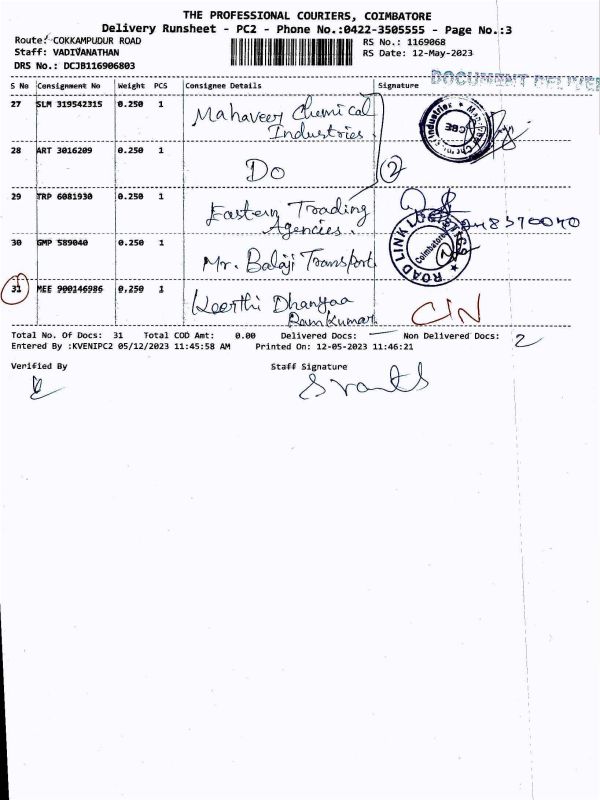 THE PROFESSIONAL COURIERS, COIMBATORE
Delivery Runsheet - PC2 - Phone No.:0422-3505555 - Page No.:3
Route: COKKAMPUDUR ROAD
RS No.: 1169068
Staff: VADIVANATHAN
RS Date: 12-May-2023
DRS No.: DCJB116906803
DOCUMENT DELIVE
S No Consignment No Weight PCS Consignee Details Signature
27 SLM 319542315 0.250 1 Mahaveer Chemical
Industries
28 ART 3016209 0.250 1 Do
2
29 TRP 6081930 0.250 1 Eastern Trading
Agencies.
30 GMP 589040 0.250 1 Mr. Balaji Transport
ROAD LINK
Coimbatore
31 MEE 900146986 0.250 1 Keerthi Dhanyaa
Ramkumar
C/N
Total No. Of Docs: 31 Total COD Amt: 0.00 Delivered Docs: Non Delivered Docs: 2
Entered By :KVENIPC2 05/12/2023 11:45:58 AM Printed On: 12-05-2023 11:46:21
Verified By Staff Signature